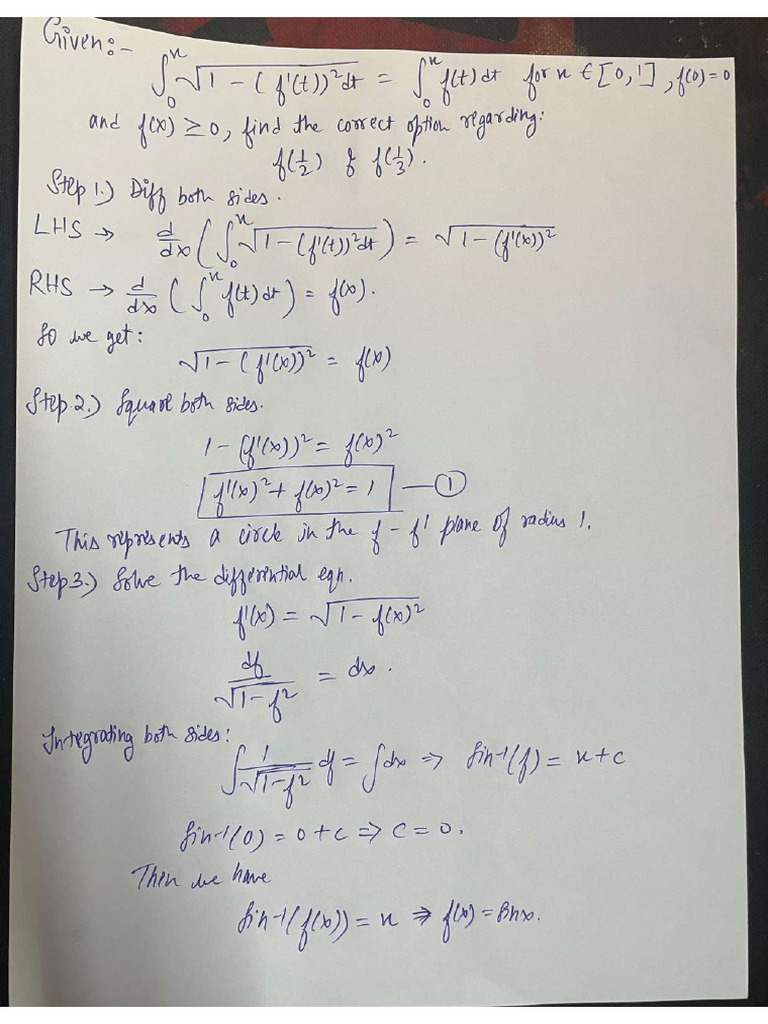 Given:-
∫₀ˣ √(1 - (f'(t))² dt) = ∫₀ˣ f(t) dt for x ∈ [0,1], f(0) = 0
and f(x) ≥ 0, find the correct option regarding:
f(1/2) & f(1/3).
Step 1.) Diff both sides.
LHS → d/dx (∫₀ˣ √(1 - (f'(t))² dt)) = √(1 - (f'(x))²)
RHS → d/dx (∫₀ˣ f(t) dt) = f(x).
So we get:
√(1 - (f'(x))²) = f(x)
Step 2.) Square both sides.
1 - (f'(x))² = f(x)²
f'(x)² + f(x)² = 1 — ①
This represents a circle in the f - f' plane of radius 1.
Step 3.) Solve the differential eqn.
f'(x) = √(1 - f(x)²)
df/√(1 - f²) = dx.
Integrating both sides:
∫ 1/√(1 - f²) df = ∫ dx ⇒ Sin⁻¹(f) = x + c
Sin⁻¹(0) = 0 + c ⇒ c = 0.
Then we have
Sin⁻¹(f(x)) = x ⇒ f(x) = Sinx.